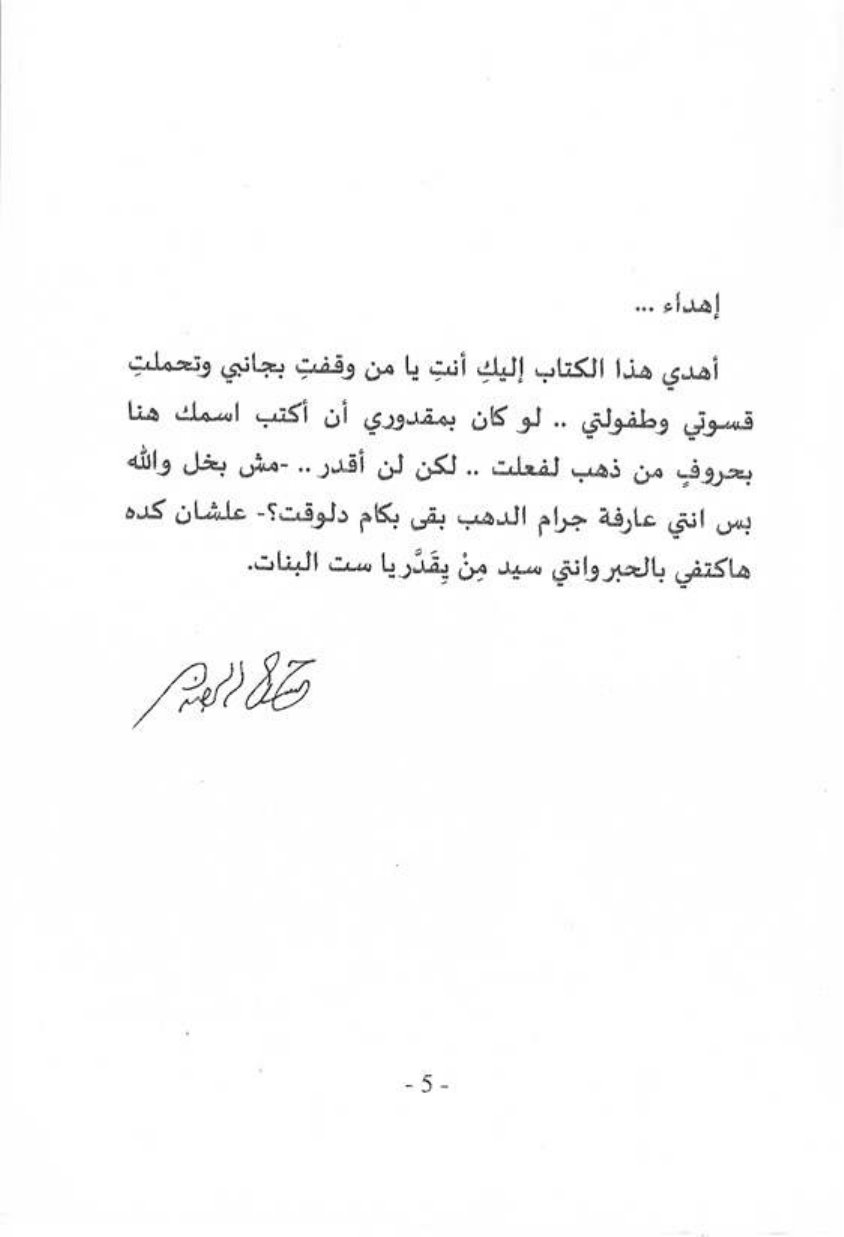 إهداء ...
أهدي هذا الكتاب إليكِ أنتِ يا من وقفتِ بجانبي وتحملتِ
قسوتي وطفولتي .. لو كان بمقدوري أن أكتب اسمك هنا
بحروفٍ من ذهب لفعلت .. لكن لن أقدر .. -مش بخل والله
بس انتي عارفة جرام الدهب بقى بكام دلوقت؟- علشان كده
هاكتفي بالحبر وانتي سيد مِنْ يِقَدَّر يا ست البنات.
- 5 -